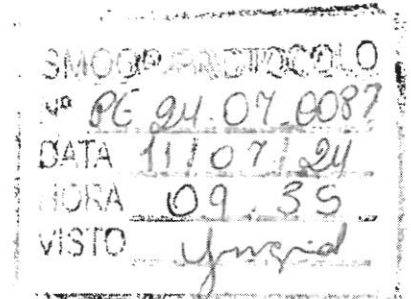 SMOOP-PROTOCOLO
Nº PE 24.07.0087
DATA 11/07/24
HORA 09:35
VISTO Yngrid